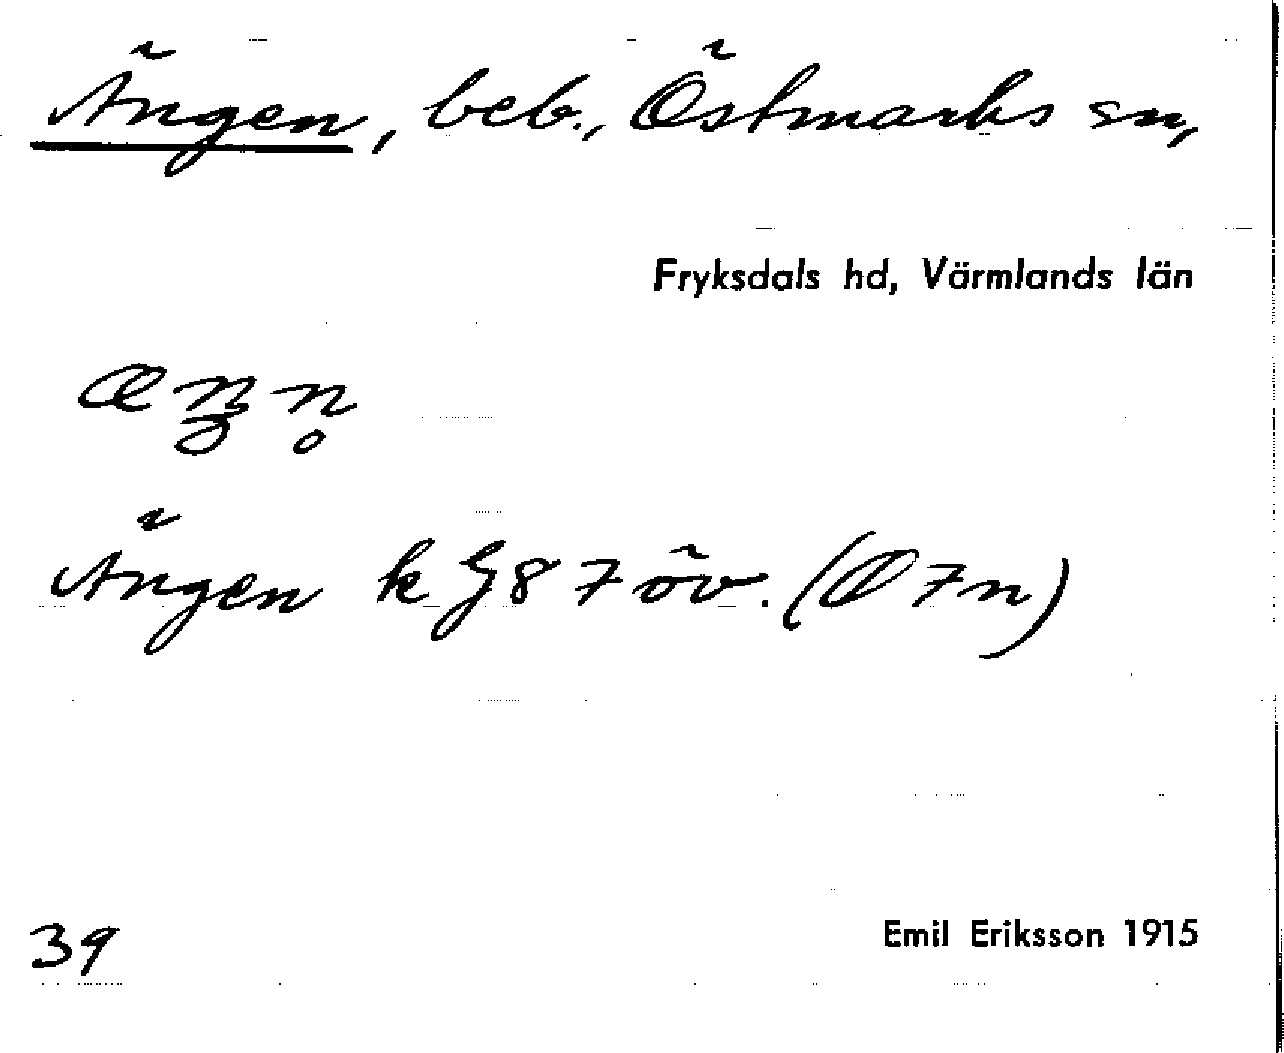 Ängen, beb., Östmarks sn,
Fryksdals hd, Värmlands län
Ängen k G87 öv. (Ø7n)
39
Emil Eriksson 1915